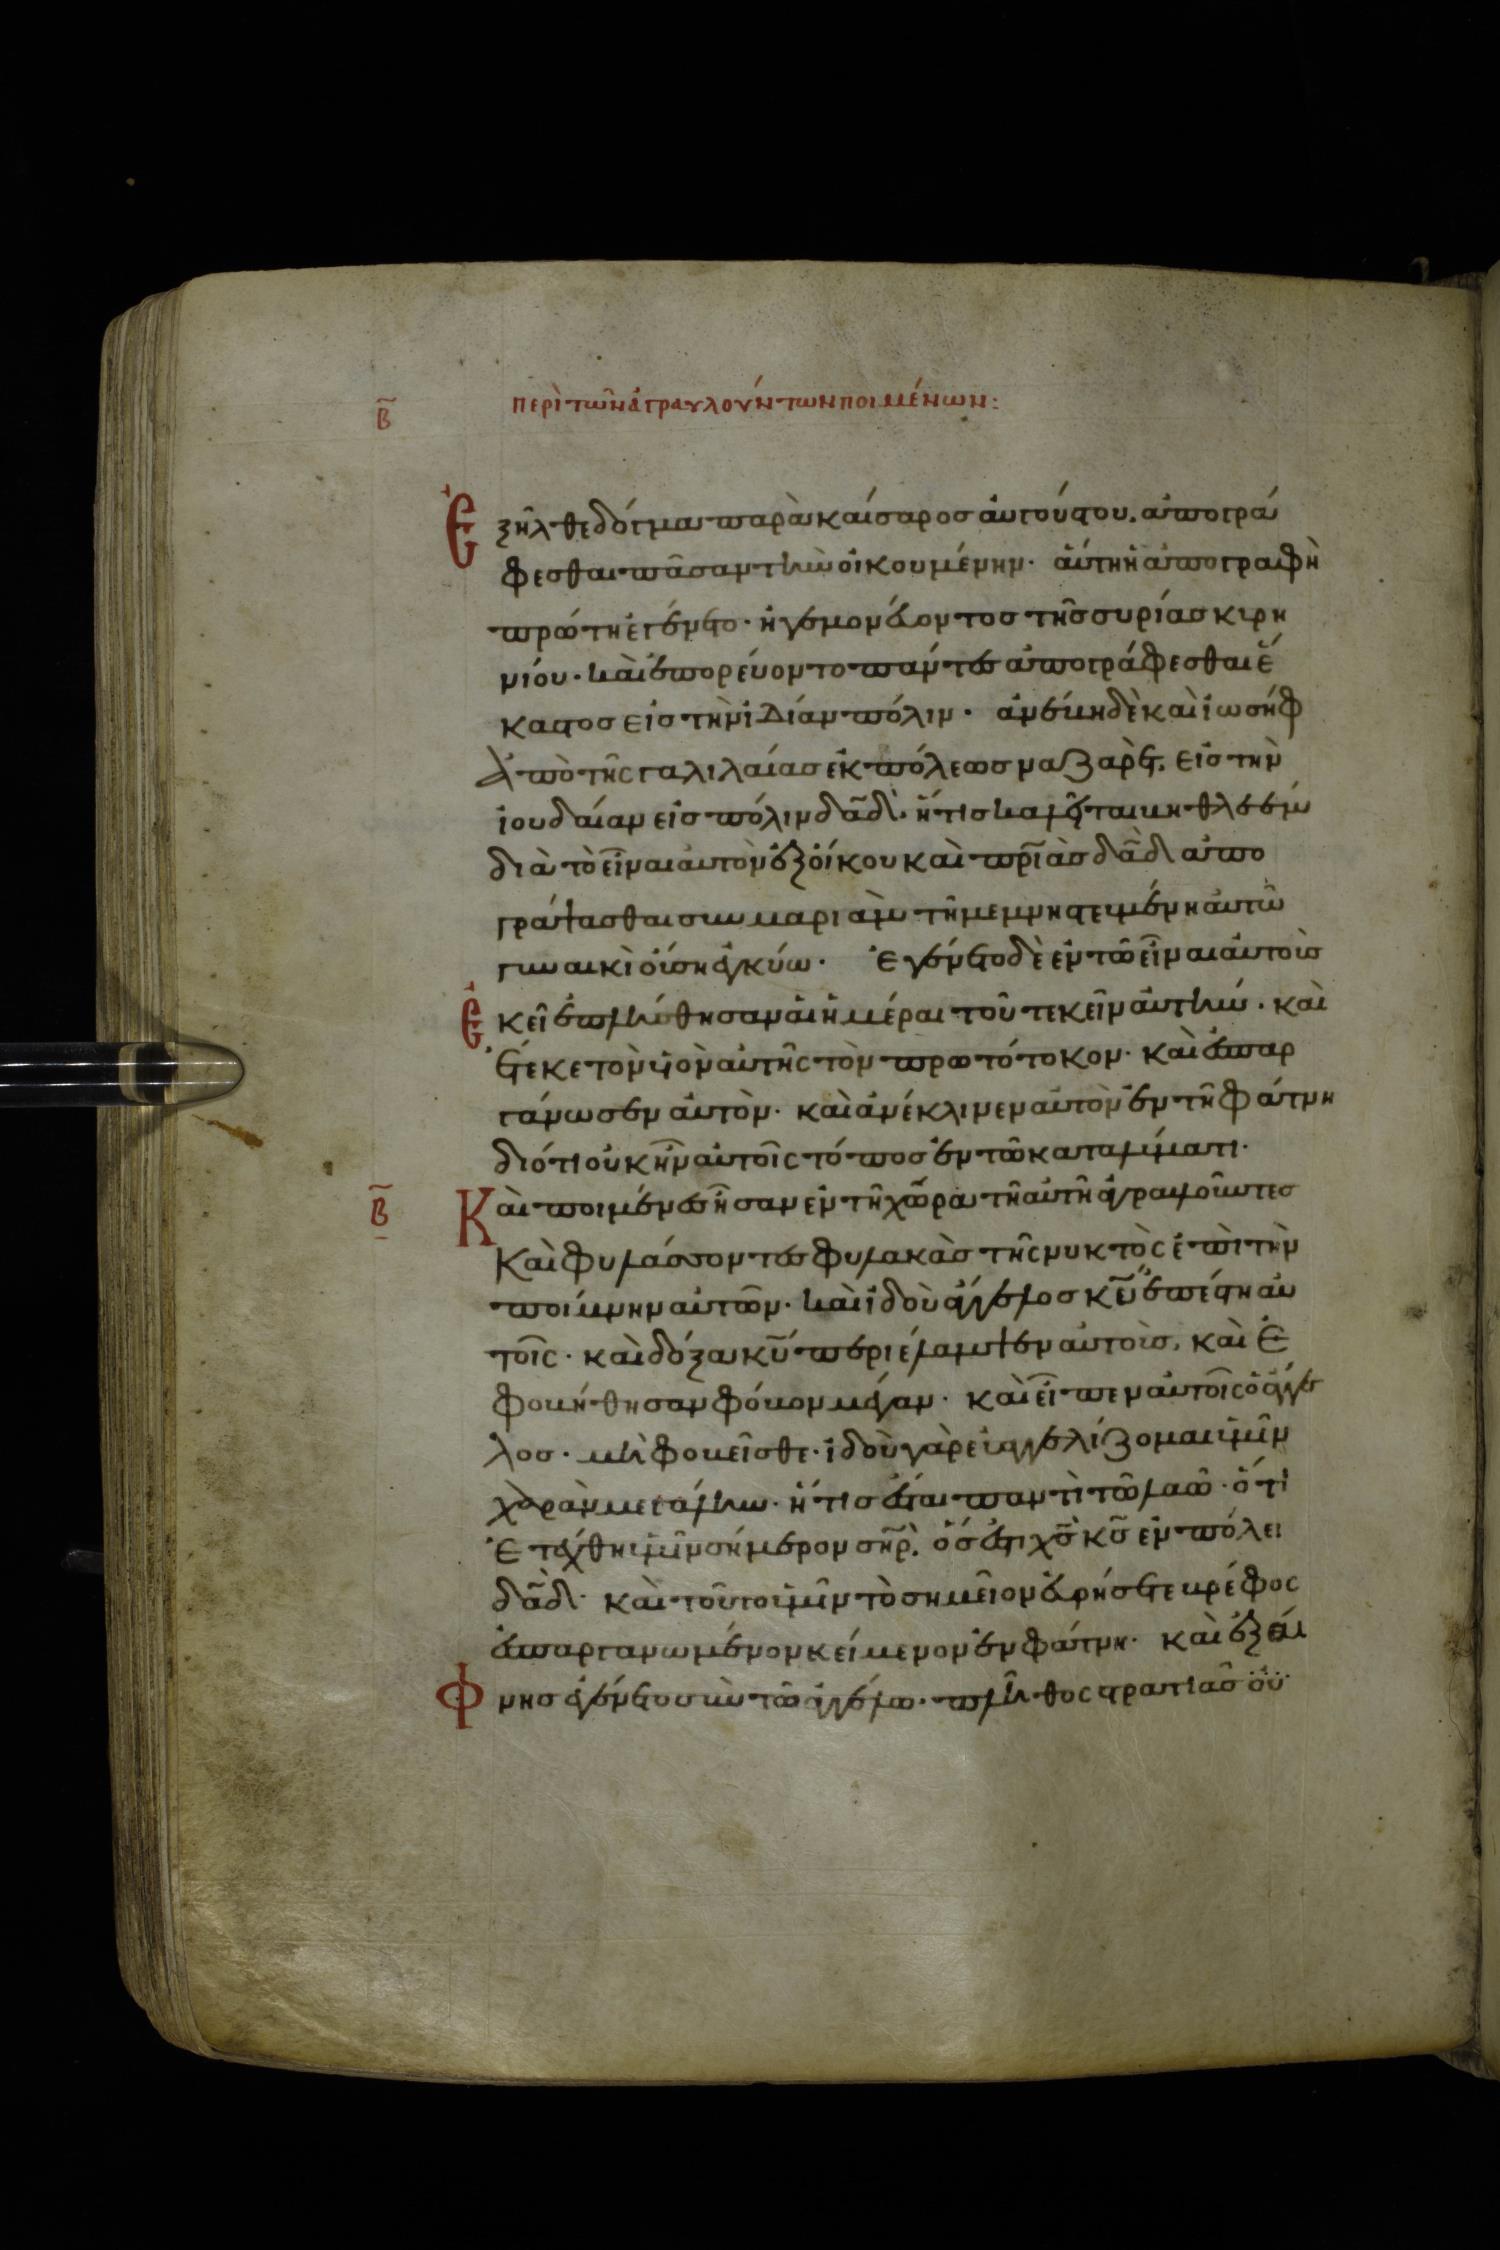 β̅ περὶ τῶν ἀγραυλούντων ποιμένων:
Ἐξῆλθε δόγμα παρὰ καίσαρος ἀυγούστου. ἀπογρά
φεσθαι πᾶσαν τὴν ὀικουμένην· ἀύτη ἡ ἀπογραφὴ
πρώτη ἐγένετο· ἡγεμονέυοντος τῆς συρίας κιρη
νίου· καὶ ἐπορέυοντο πάντες ἀπογράφεσθαι ἕ
καστος εἰς τὴν ἰδίαν πόλιν· ἀνέβη δὲ καὶ ἰωσὴφ
ἀπὸ τῆς γαλιλαίας ἐκ πόλεως ναζαρὲτ, εἰς τὴν
ἰουδαίαν εἰς πόλιν δα̅δ· ἥτις καλεῖται βηθλεέμ
διὰ τὸ εἶναι αὐτὸν ἐξ ὀίκου καὶ πρ̅ιὰς δα̅δ ἀπο
γράψασθαι σὺν μαριὰμ τῆ μεμνηστευμένη αὐτῶ
γυναικὶ ὀύση ἐγκύω· Ἐγένετο δὲ ἐν τῶ εἶναι ἀυτοὺς
Ἐκεῖ ἐπλήσθησαν ἁι ἡμέραι τοῦ τεκεῖν ἀυτήν· καὶ
ἔτεκε τὸν υἱὸν αὐτῆς τὸν πρωτότοκον· καὶ ἐσπαρ
γάνωσεν ἀυτὸν· καὶ ἀνέκλινεν αὐτὸν ἐν τῆ φάτνη
διότι οὐκ ἦν αὐτοῖς τόπος ἐν τῶ καταλύματι·
β̅ Καὶ ποιμένες ἦσαν ἐν τῆ χώρα τῆ αὐτῆ ἀγραυλοῦντες
καὶ φυλάσσοντες φυλακὰς τῆς νυκτὸς ἐπὶ τὴν
ποίμνην αὐτῶν· καὶ ἰδοὺ ἄγγελος κ̅υ ἐπέστη αὐ
τοῖς· καὶ δόξα κ̅υ περιέλαμψεν αὐτοὺς, καὶ ἐ
φοβήθησαν φόβον μέγαν· καὶ εἶπεν αὐτοῖς ὁ ἄγγε
λος· μὴ φοβεῖσθε· ἰδοὺ γὰρ εὐαγγελίζομαι ὑμῖν
χαρὰν μεγάλην· ἥτις ἔσται παντὶ τῶ λαῶ· ὅτι
ἐτέχθη ὑμῖν σήμερον σ̅ηρ, ὅς ἐστι χ̅ς κ̅ς ἐν πόλει
δα̅δ· καὶ τοῦτο ὑμῖν τὸ σημεῖον ἑυρήσετε βρέφος
ἐσπαργανωμένον κείμενον ἐν φάτνη· καὶ ἐξαί
φνης ἐγένετο σὺν τῶ ἀγγέλω· πλῆθος στρατιᾶς οὐ